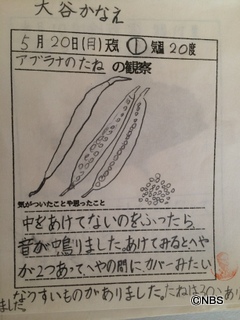 大谷かなえ
5月20日(月)天気 ① 気温20度
アブラナのたね の観察
気がついたことや思ったこと
中をあけてないのをふったら
音が鳴りました。あけてみるとへや
が2つあってへやの間にカバーみたい
なうすいものがありました。たねは30こあり
ました。
©NBS